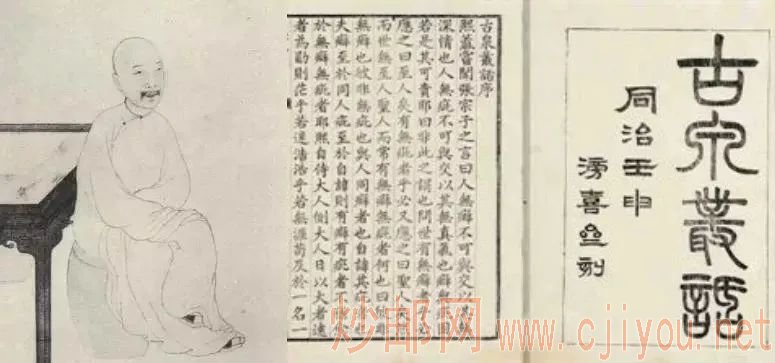 古泉叢話
同治壬申
滂喜齋刻
古泉叢話序
熙載嘗聞張宗子之言曰人無癖不可與交以其無
深情也人無疵不可與交以其無真氣也癖與疵
若是其可貴耶曰非此之謂也問世有無癖者乎必
應之曰至人矣有無疵者乎必又應之曰聖人矣
而世無至人聖人而常有無癖無疵者何也曰彼非
無癖也彼非無疵也與人同癖者也自諱其疵
夫癖至於同人疵至於自諱則有癖有疵者
於無癖無疵者耶熙自侍大人側大人日以大者遠
者為勖則茫乎若迷浩浩乎若無涯茍反於一名一
炒邮网
www.cjiyou.net